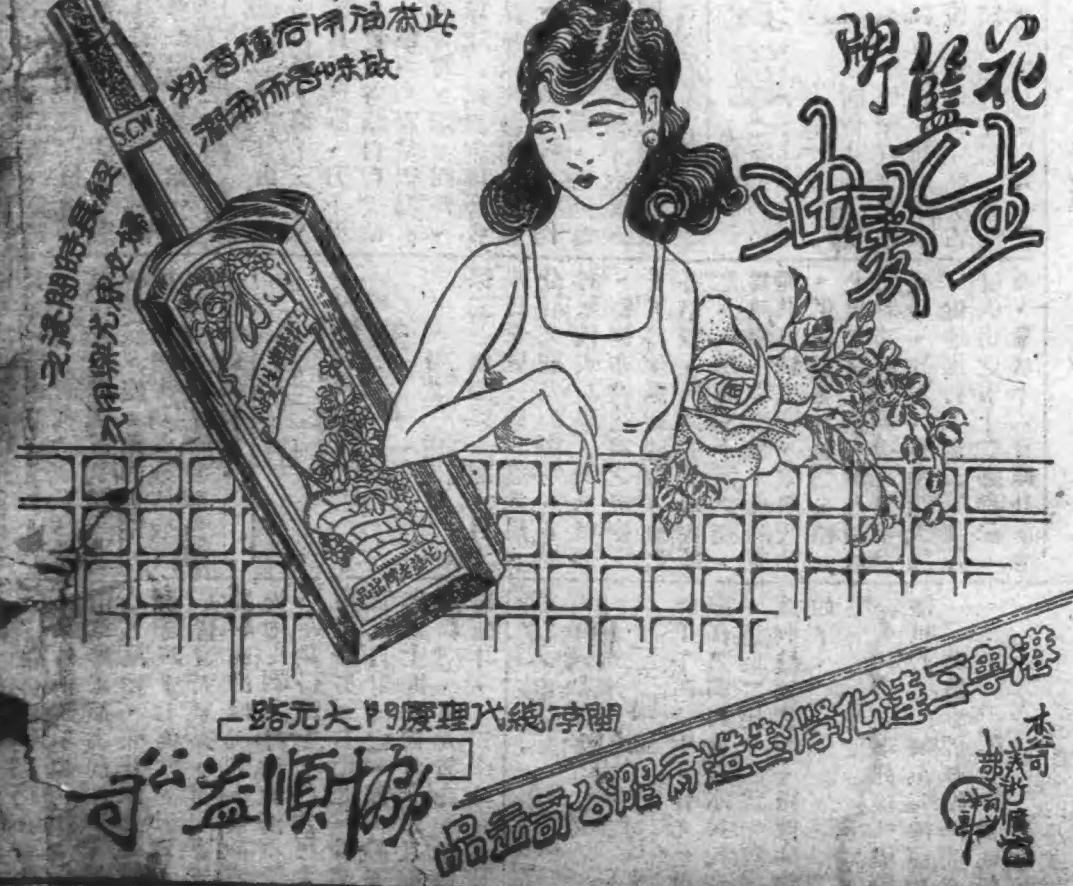 花籃牌
生髮油
此茶油用各種香料
故味香而柔潤
經長時間
婦女尤樂用之
S.C.W.
閩南總代理廈門大元路
協順益公司
港粵三達化學製造有限公司出品
美術廣告